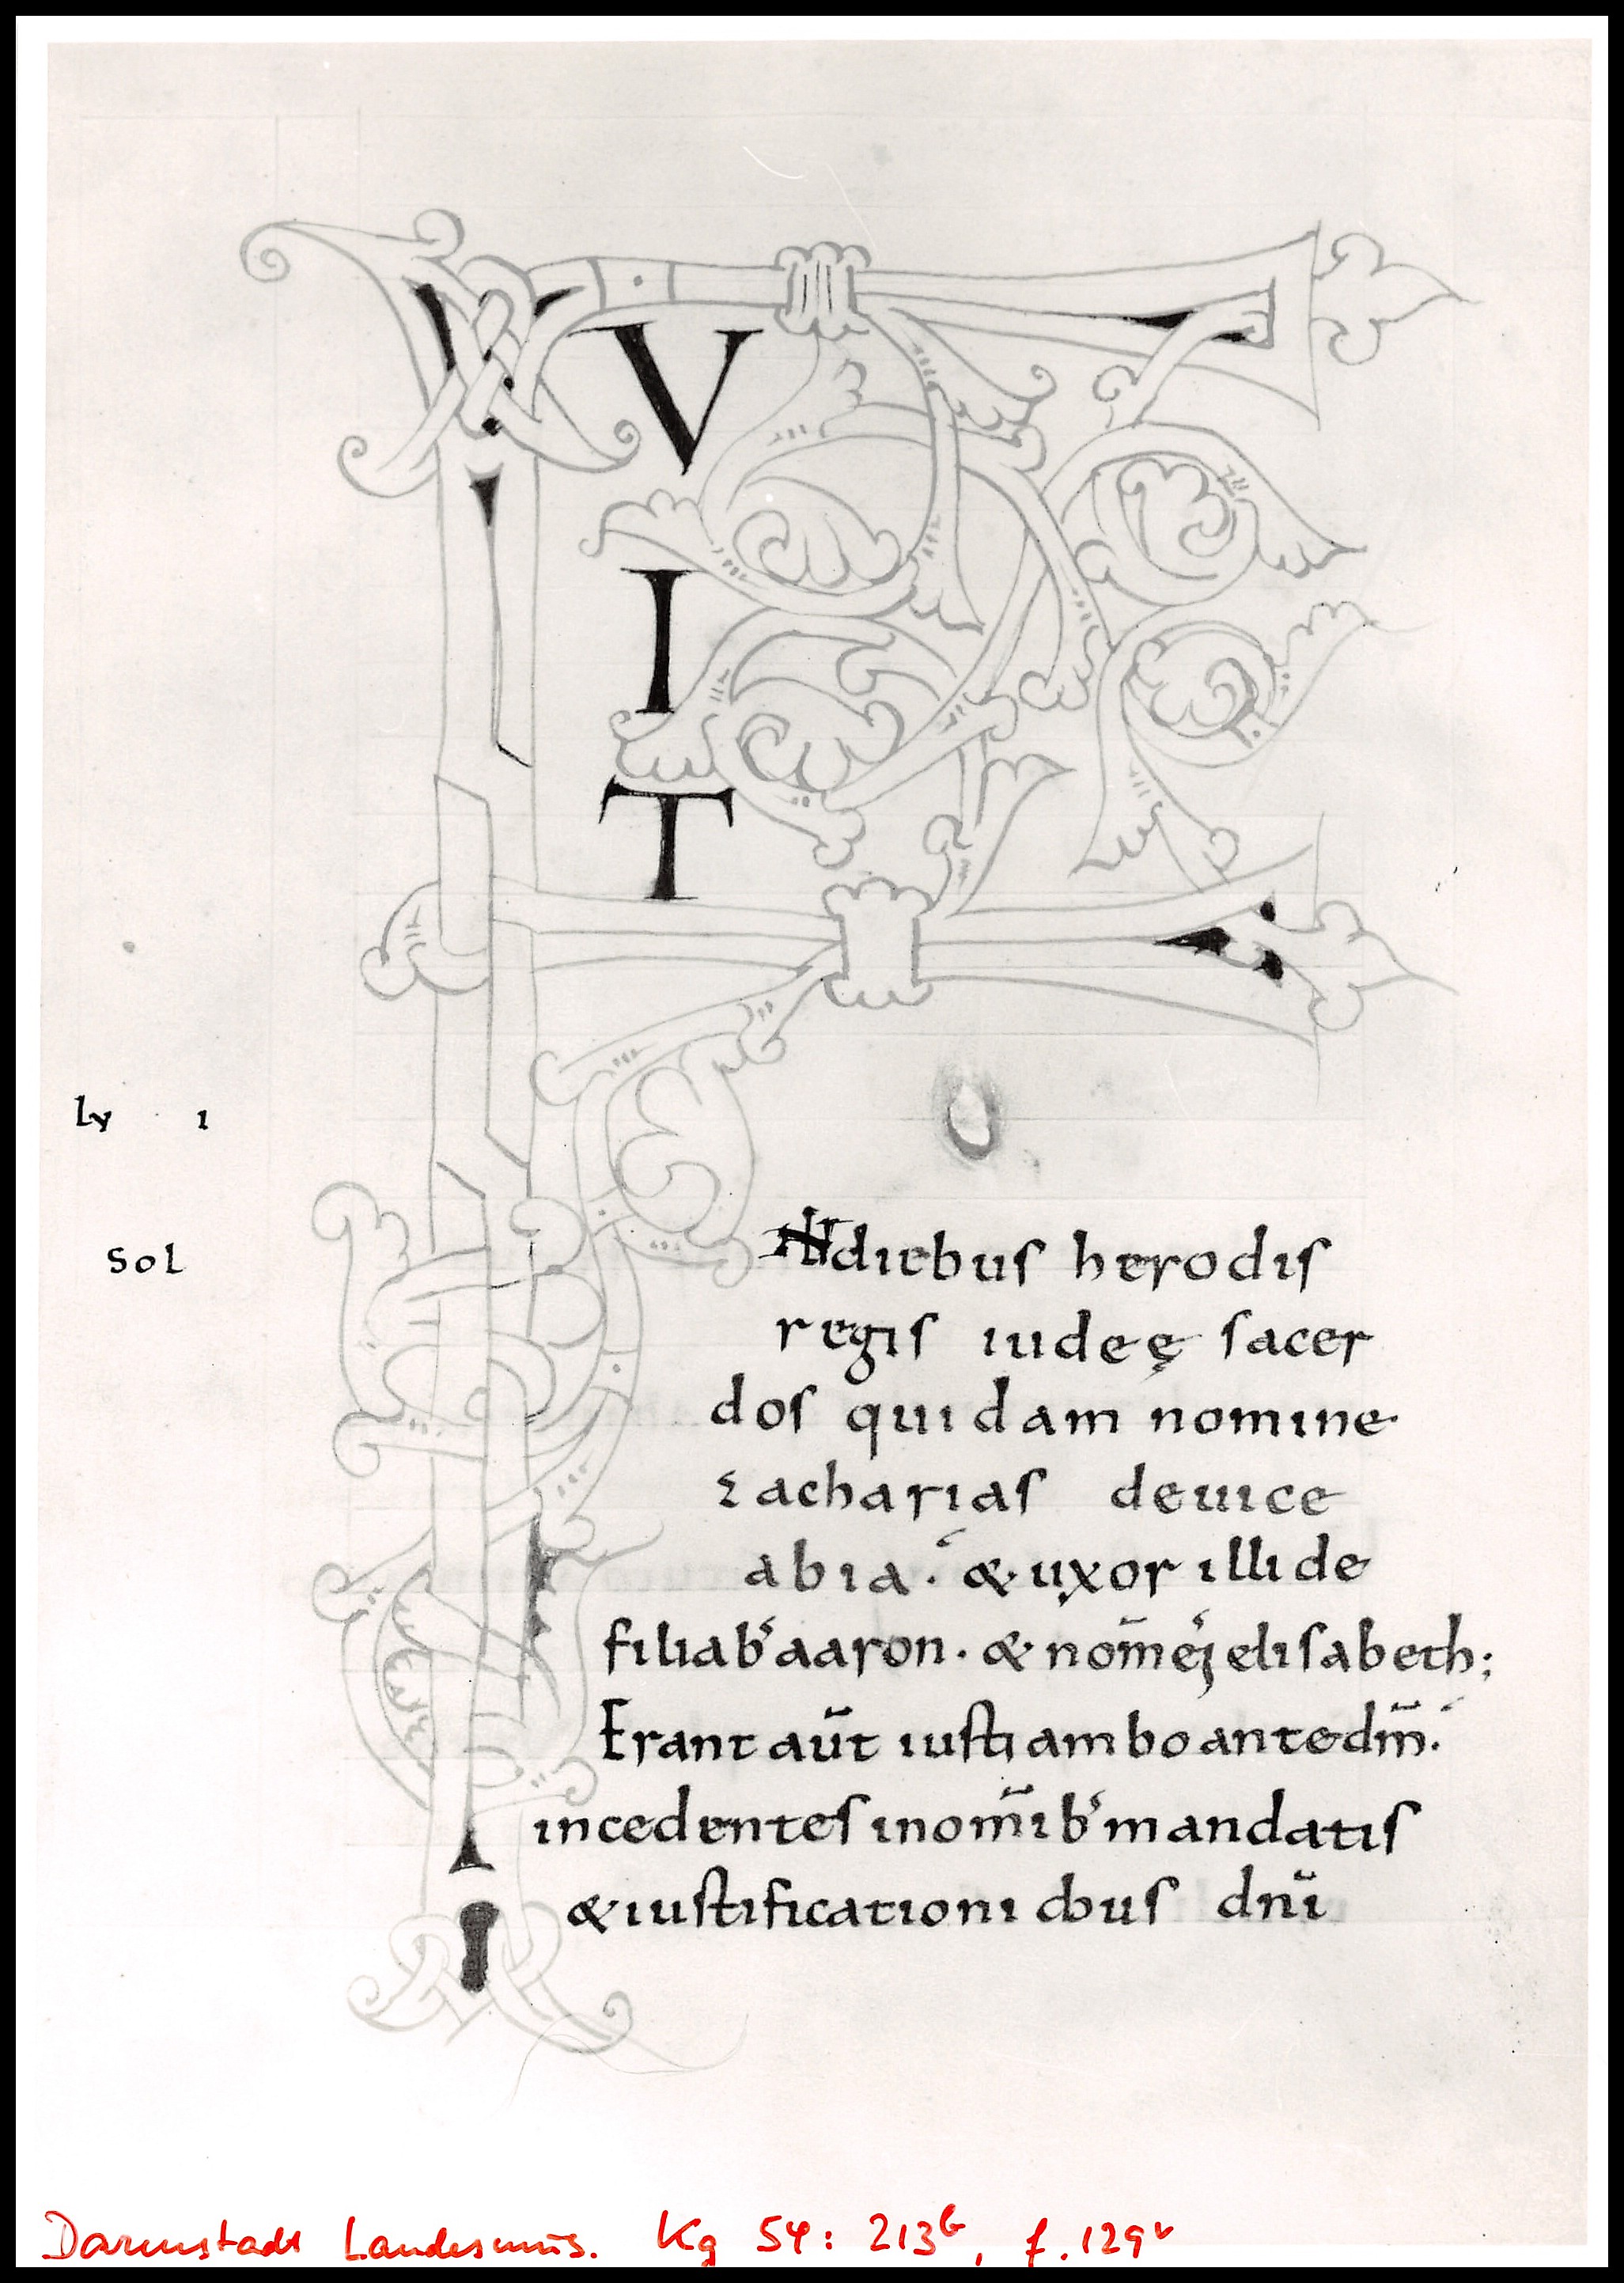 F
V
I
T
Ly 1
Sol
INdiebus herodis
regis iudeę sacer
dos quidam nomine
zacharias deuice
abia. & uxor illi de
filiab' aaron. & nom̄ ei' elisabeth;
Erant aūt iusti ambo ante dm̄.
incedentes inom̄ib' mandatis
& iustificationibus dn̄i
Darmstadt Landesmus. Kg 54: 213b, f. 129v